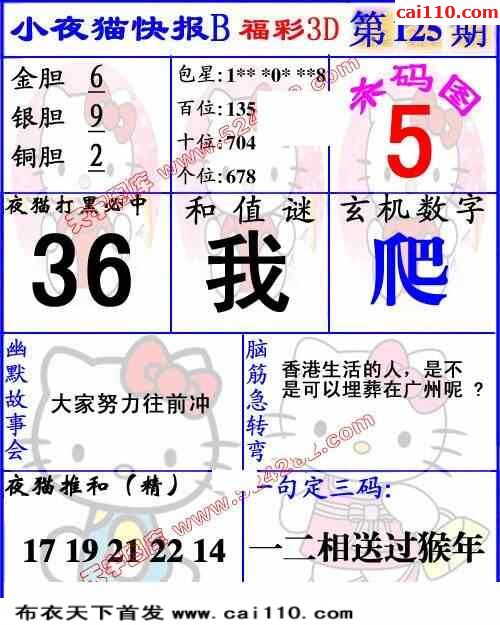 cai110.com
小夜猫快报B 福彩3D 第125期
金胆 6
银胆 9
铜胆 2
包星:1** *0* **8
百位:135
十位:704
个位:678
杀码图
5
夜猫打黑必中
36
和值谜
我
玄机数字
爬
幽默故事会
大家努力往前冲
脑筋急转弯
香港生活的人，是不
是可以埋葬在广州呢 ?
夜猫推和（精）
17 19 21 22 14
一句定三码:
一二相送过猴年
天宇图库 www.524262.com
布衣天下首发 www.cai110.com